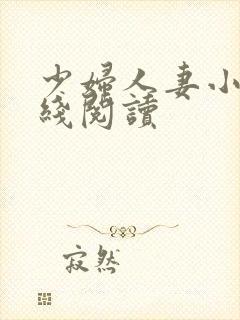 少婦人妻小
綫閱讀
寂然